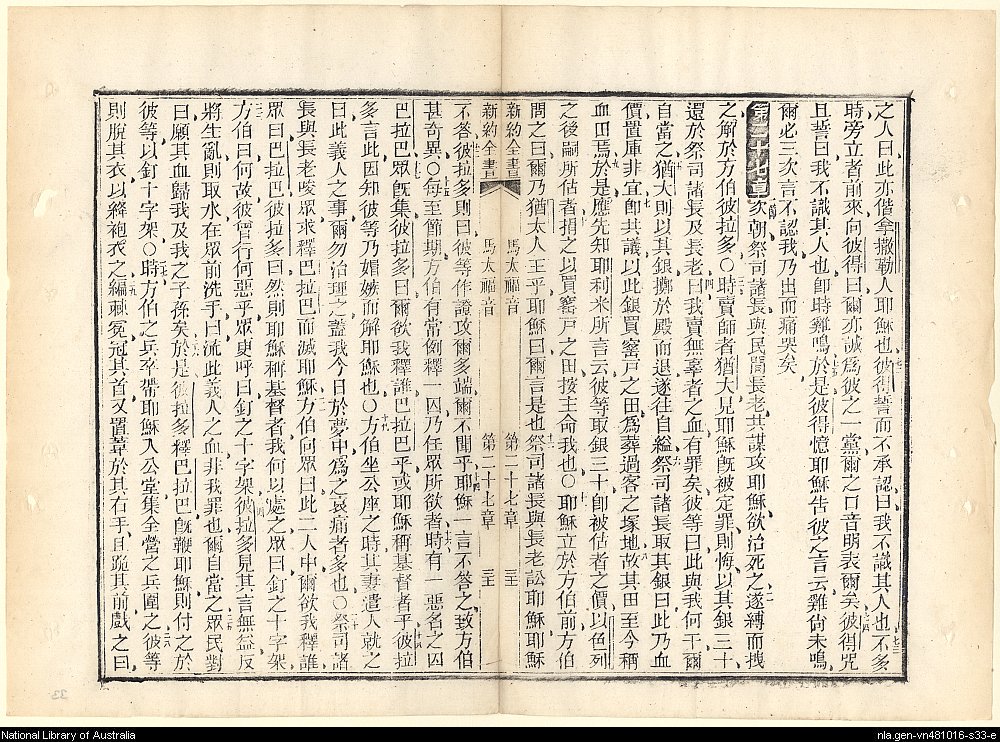 之人曰此亦偕拿撒勒人耶穌也彼得誓而不承認曰我不識其人也不多
時旁立者前來向彼得曰爾亦誠爲彼之一黨爾之口音明表爾矣彼得咒
且誓曰我不識其人也卽時雞鳴於是彼得憶耶穌告彼之言云雞尙未鳴
爾必三次言不認我乃出而痛哭矣
第二十七章次朝祭司諸長與民間長老共謀攻耶穌欲治死之遂縛而拽
之解於方伯彼拉多○時賣師者猶大見耶穌旣被定罪則悔以其銀三十
還於祭司諸長及長老曰我賣無辜者之血有罪矣彼等曰此與我何干爾
自當之猶大則以其銀擲於殿而退遂往自縊祭司諸長取其銀曰此乃血
價置庫非宜卽共議以此銀買窰戶之田爲葬過客之塚地故其田至今稱
血田焉於是應先知耶利米所言云彼等取銀三十卽被估者之價以色列
之後嗣所估者捐之以買窰戶之田按主命我也○耶穌立於方伯前方伯
問之曰爾乃猶太人王乎耶穌曰爾言是也祭司諸長與長老訟耶穌耶穌
新約全書 馬太福音 第二十七章 三十三
新約全書 馬太福音 第二十七章 三十三
不答彼拉多則曰彼等作證攻爾多端爾不聞乎耶穌一言不答之致方伯
甚奇異○每至節期方伯有常例釋一囚乃任眾所欲者時有一惡名之囚
巴拉巴眾旣集彼拉多曰爾欲我釋誰巴拉巴乎或耶穌稱基督者乎彼拉
多言此因知彼等乃媢嫉而解耶穌也○方伯坐公座之時其妻遣人就之
曰此義人之事爾勿治理之蓋我今日於夢中爲之哀痛者多也○祭司諸
長與長老唆眾求釋巴拉巴而滅耶穌方伯向眾曰此二人中爾欲我釋誰
眾曰巴拉巴彼拉多曰然則耶穌稱基督者我何以處之眾曰釘之十字架
方伯曰何故彼曾行何惡乎眾更呼曰釘之十字架彼拉多見其言無益反
將生亂則取水在眾前洗手曰流此義人之血非我罪也爾自當之眾民對
曰願其血歸我及我之子孫矣於是彼拉多釋巴拉巴旣鞭耶穌則付之於
彼等以釘十字架○時方伯之兵卒帶耶穌入公堂集全營之兵圍之彼等
則脫其衣以絳袍衣之編棘冕冠其首又置葦於其右手且跪其前戲之曰
33
National Library of Australia
nla.gen-vn481016-s33-e